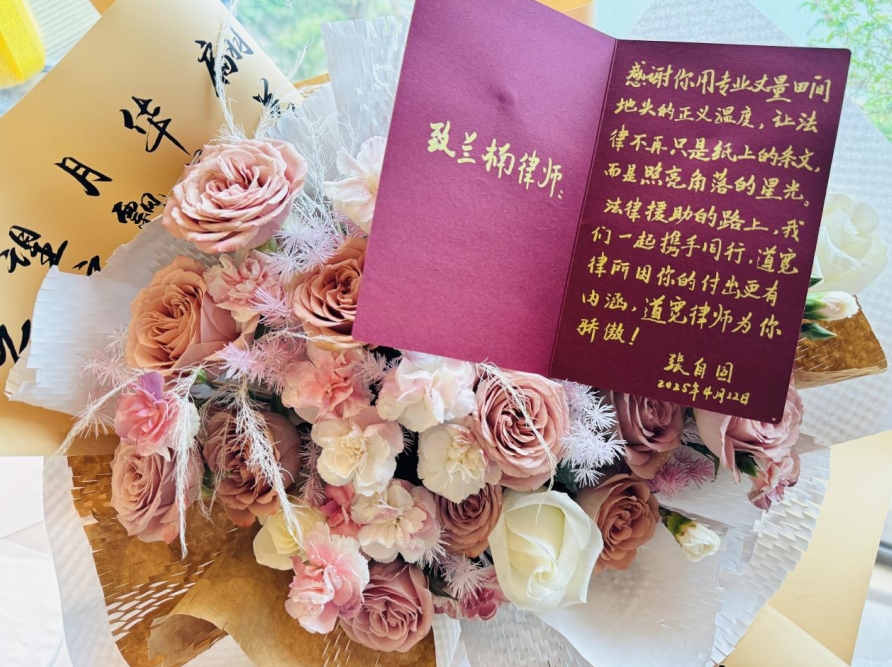 致兰楠律师:
感谢你用专业丈量田间
地头的正义温度，让法
律不再只是纸上的条文，
而是照亮角落的星光。
法律援助的路上，我
们一起携手同行，道宽
律所因你的付出更有
内涵，道宽律师为你
骄傲！
张自国
2025年4月22日
月华